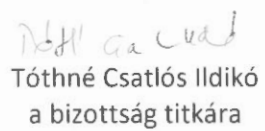 Tóthné Csatlós Ildikó
a bizottság titkára